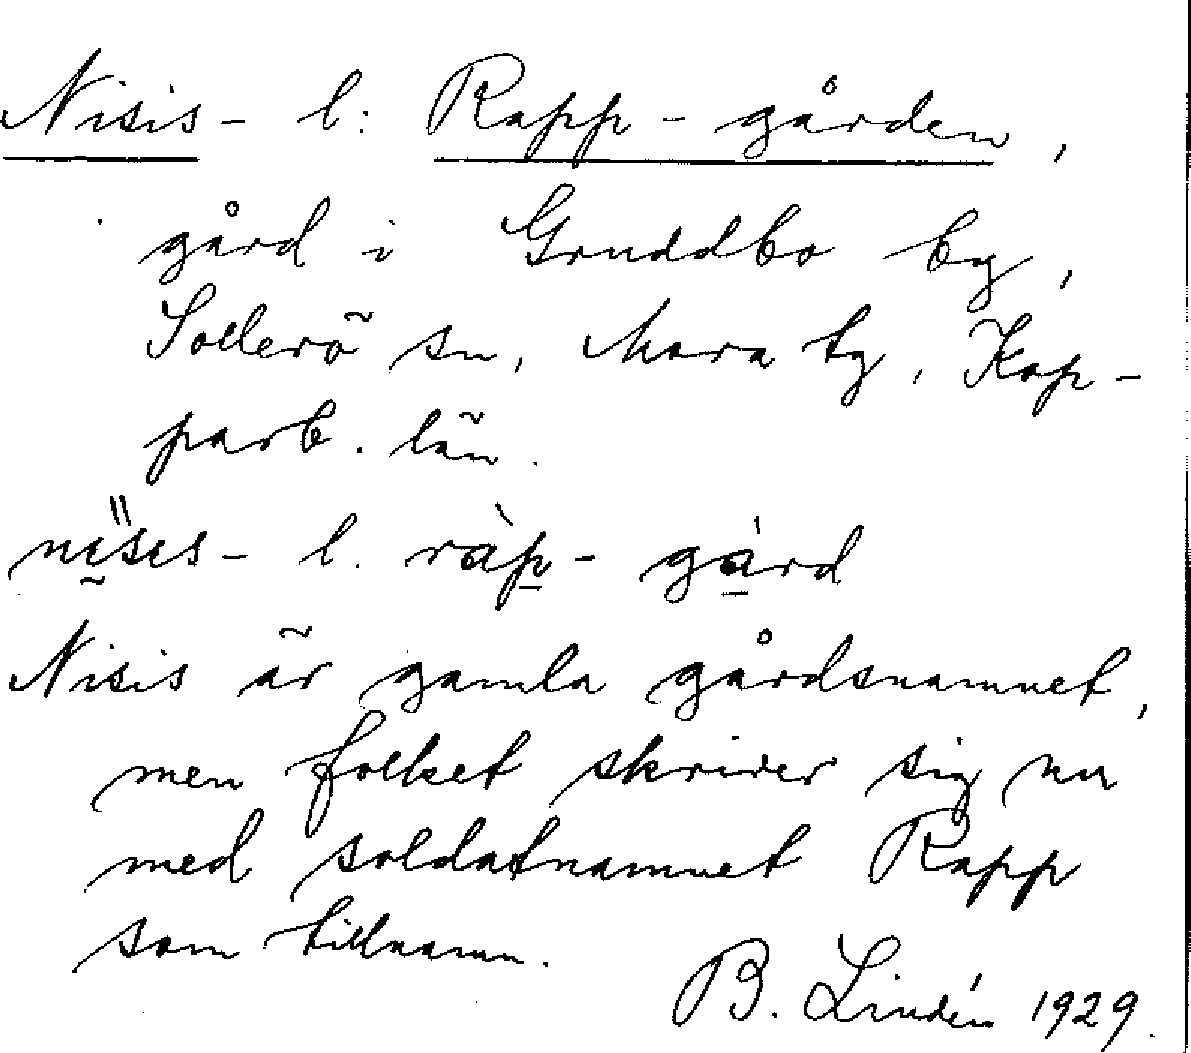 Nisis- l: Rapp-gården,
gård i Gruddbo by,
Sollerö sn, Mora tg, Kop-
parb. län.
l. ràp-
Nisis är gamla gårdsnamnet,
men folket skriver sig nu
med soldatnamnet Rapp
som tillnamn.
B. Lindén 1929.